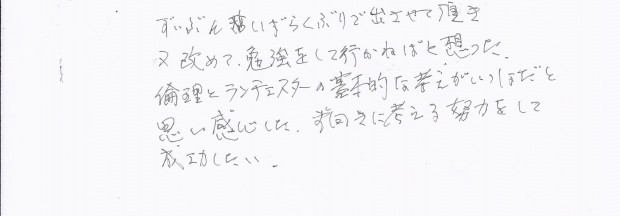 ずいぶんいばらくぶりで出させて頂き
又改めて、勉強をして行かねばと想った。
倫理とランチェスターの基本的な考えがいっしょだと
思い感じした。前向きに考える努力をして
成功したい。